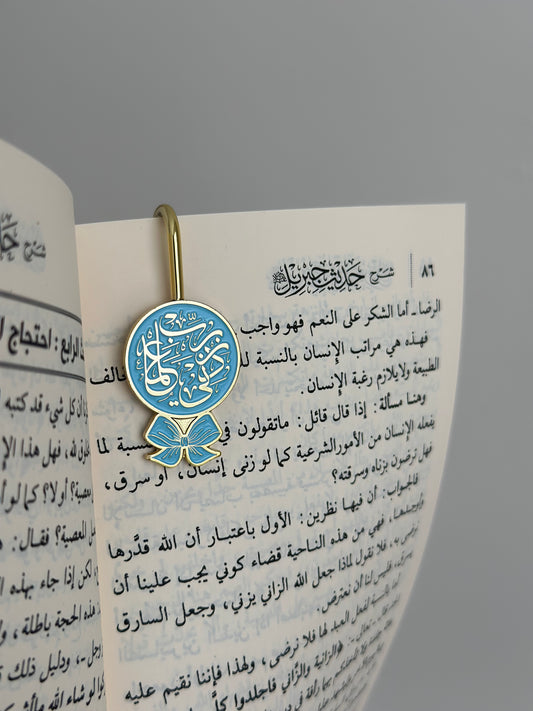 ٨٦
شرح حديث جبريل
الرضا ـ أما الشكر على النعم فهو واجب
فهذه هي مراتب الإنسان بالنسبة
الطبيعة ولايلازم رغبة الإنسان.
وهنا مسألة: إذا قال قائل: ماتقولون
يفعله الإنسان من الأمورالشرعية كما لو زنى إنسان، أو سرق،
فهل ترضون بزناه وسرقته؟
فالجواب: أن فيها نظرين: الأول باعتبار أن الله قدَّرها
وأوجدها، فهي من هذه الناحية قضاء كوني يجب علينا أن
نرضى به، فلا نقول لماذا جعل الله الزاني يزني، وجعل السارق
يسرق، فليس لنا أن نعترض.
أما بالنسبة لفعل العبد لها فلا نرضى، ولهذا فإننا نقيم عليه
﴿الزانية والزَّاني فاجلدوا
رب زدني علما
شرح
الرابع: احتجاج
أن كل شيء قد كتبه
فهل هذا
معصية؟ أولا؟ كما لو
المعصية؟ فقال:
لكن إذا جاء بهذه
هذه الحجة باطلة،
وجل ـ، ودليل ذلك
لو شاء الله